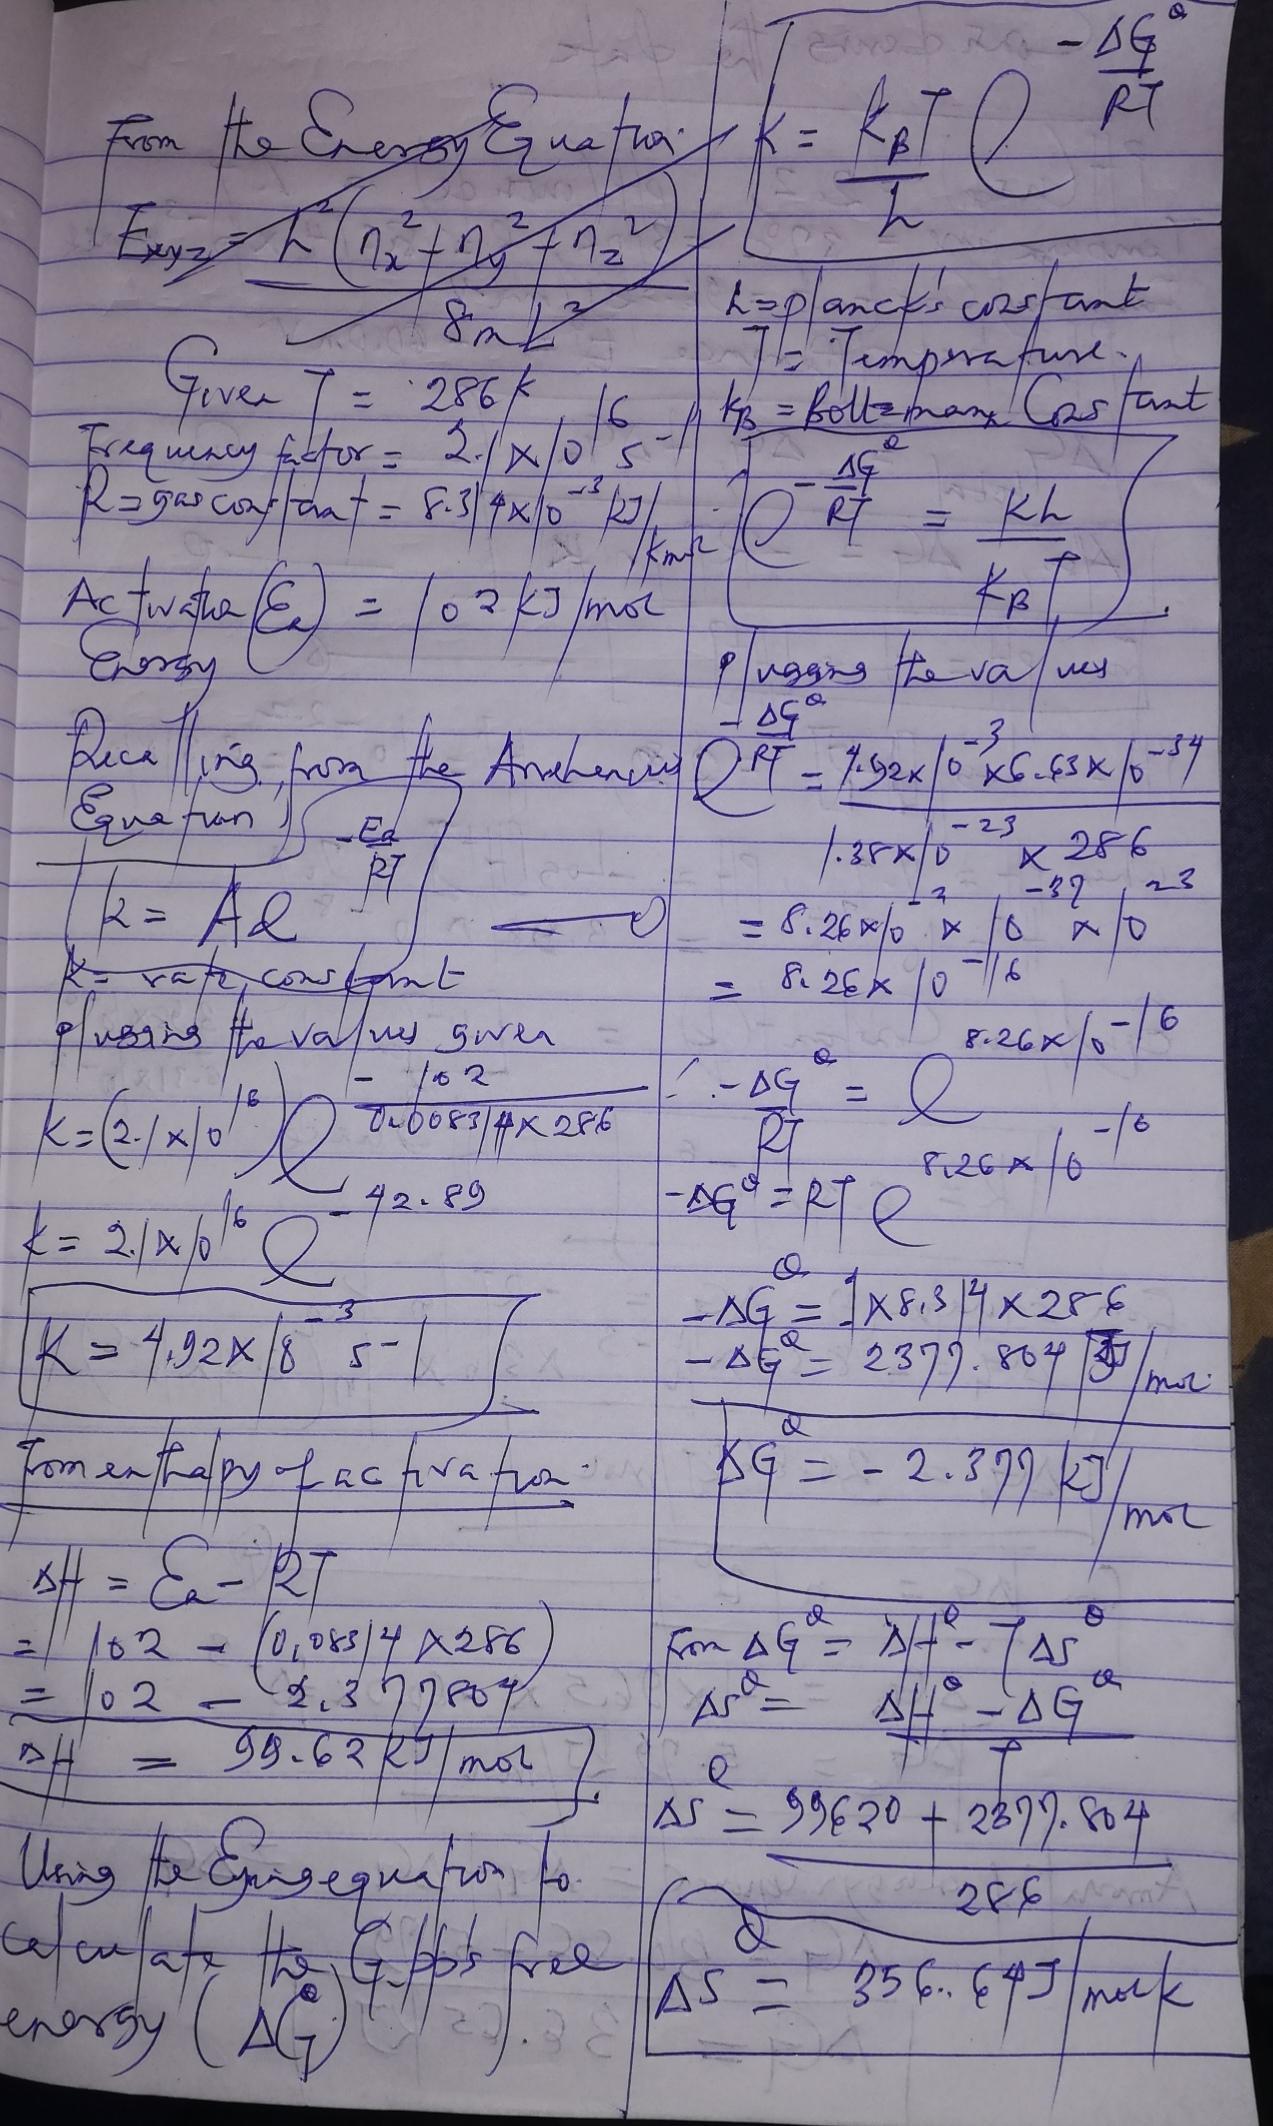 From the Energy Equation
Exyz = h²(nx² + ny² + nz²)
8mL²
Given T = 286K
Frequency factor = 2.1 x 10^16 s^-1
R = gas constant = 8.314 x 10^-3 kJ/kmol
Activation (Ea) = 102 kJ/mol
Energy
Recalling from the Arrhenius
Equation
k = Ae^-Ea/RT
K = rate constant
plugging the values given
K = (2.1 x 10^16) e^-102/0.008314 x 286
K = 2.1 x 10^16 e^-42.89
K = 4.92 x 10^-3 s^-1
From enthapy of activation
ΔH = Ea - RT
= 102 - (0,08314 x 286)
= 102 - 2.377804
ΔH = 99.62 kJ/mol
Using the Eyring equation to
calculate the Gibb's free
energy (ΔG°)
K = KBT/h e^-ΔG°/RT
h = planck's constant
T = Temperature.
kB = Boltzmann Constant
e^-ΔG°/RT = Kh/KBT
plugging the values
e^-ΔG°/RT = 4.92 x 10^-3 x 6.63 x 10^-34
1.38 x 10^-23 x 286
= 8.26 x 10^-2 x 10^-37 x 10^23
= 8.26 x 10^-16
∴ -ΔG°/RT = e^8.26 x 10^-16
-ΔG° = RT e^8.26 x 10^-16
-ΔG° = 1 x 8.314 x 286
-ΔG° = 2377.804 J/mol
ΔG° = -2.377 kJ/mol
From ΔG° = ΔH° - TΔS°
ΔS° = ΔH° - ΔG°/T
ΔS° = 99620 + 2377.804
286
ΔS° = 356.64J/molk